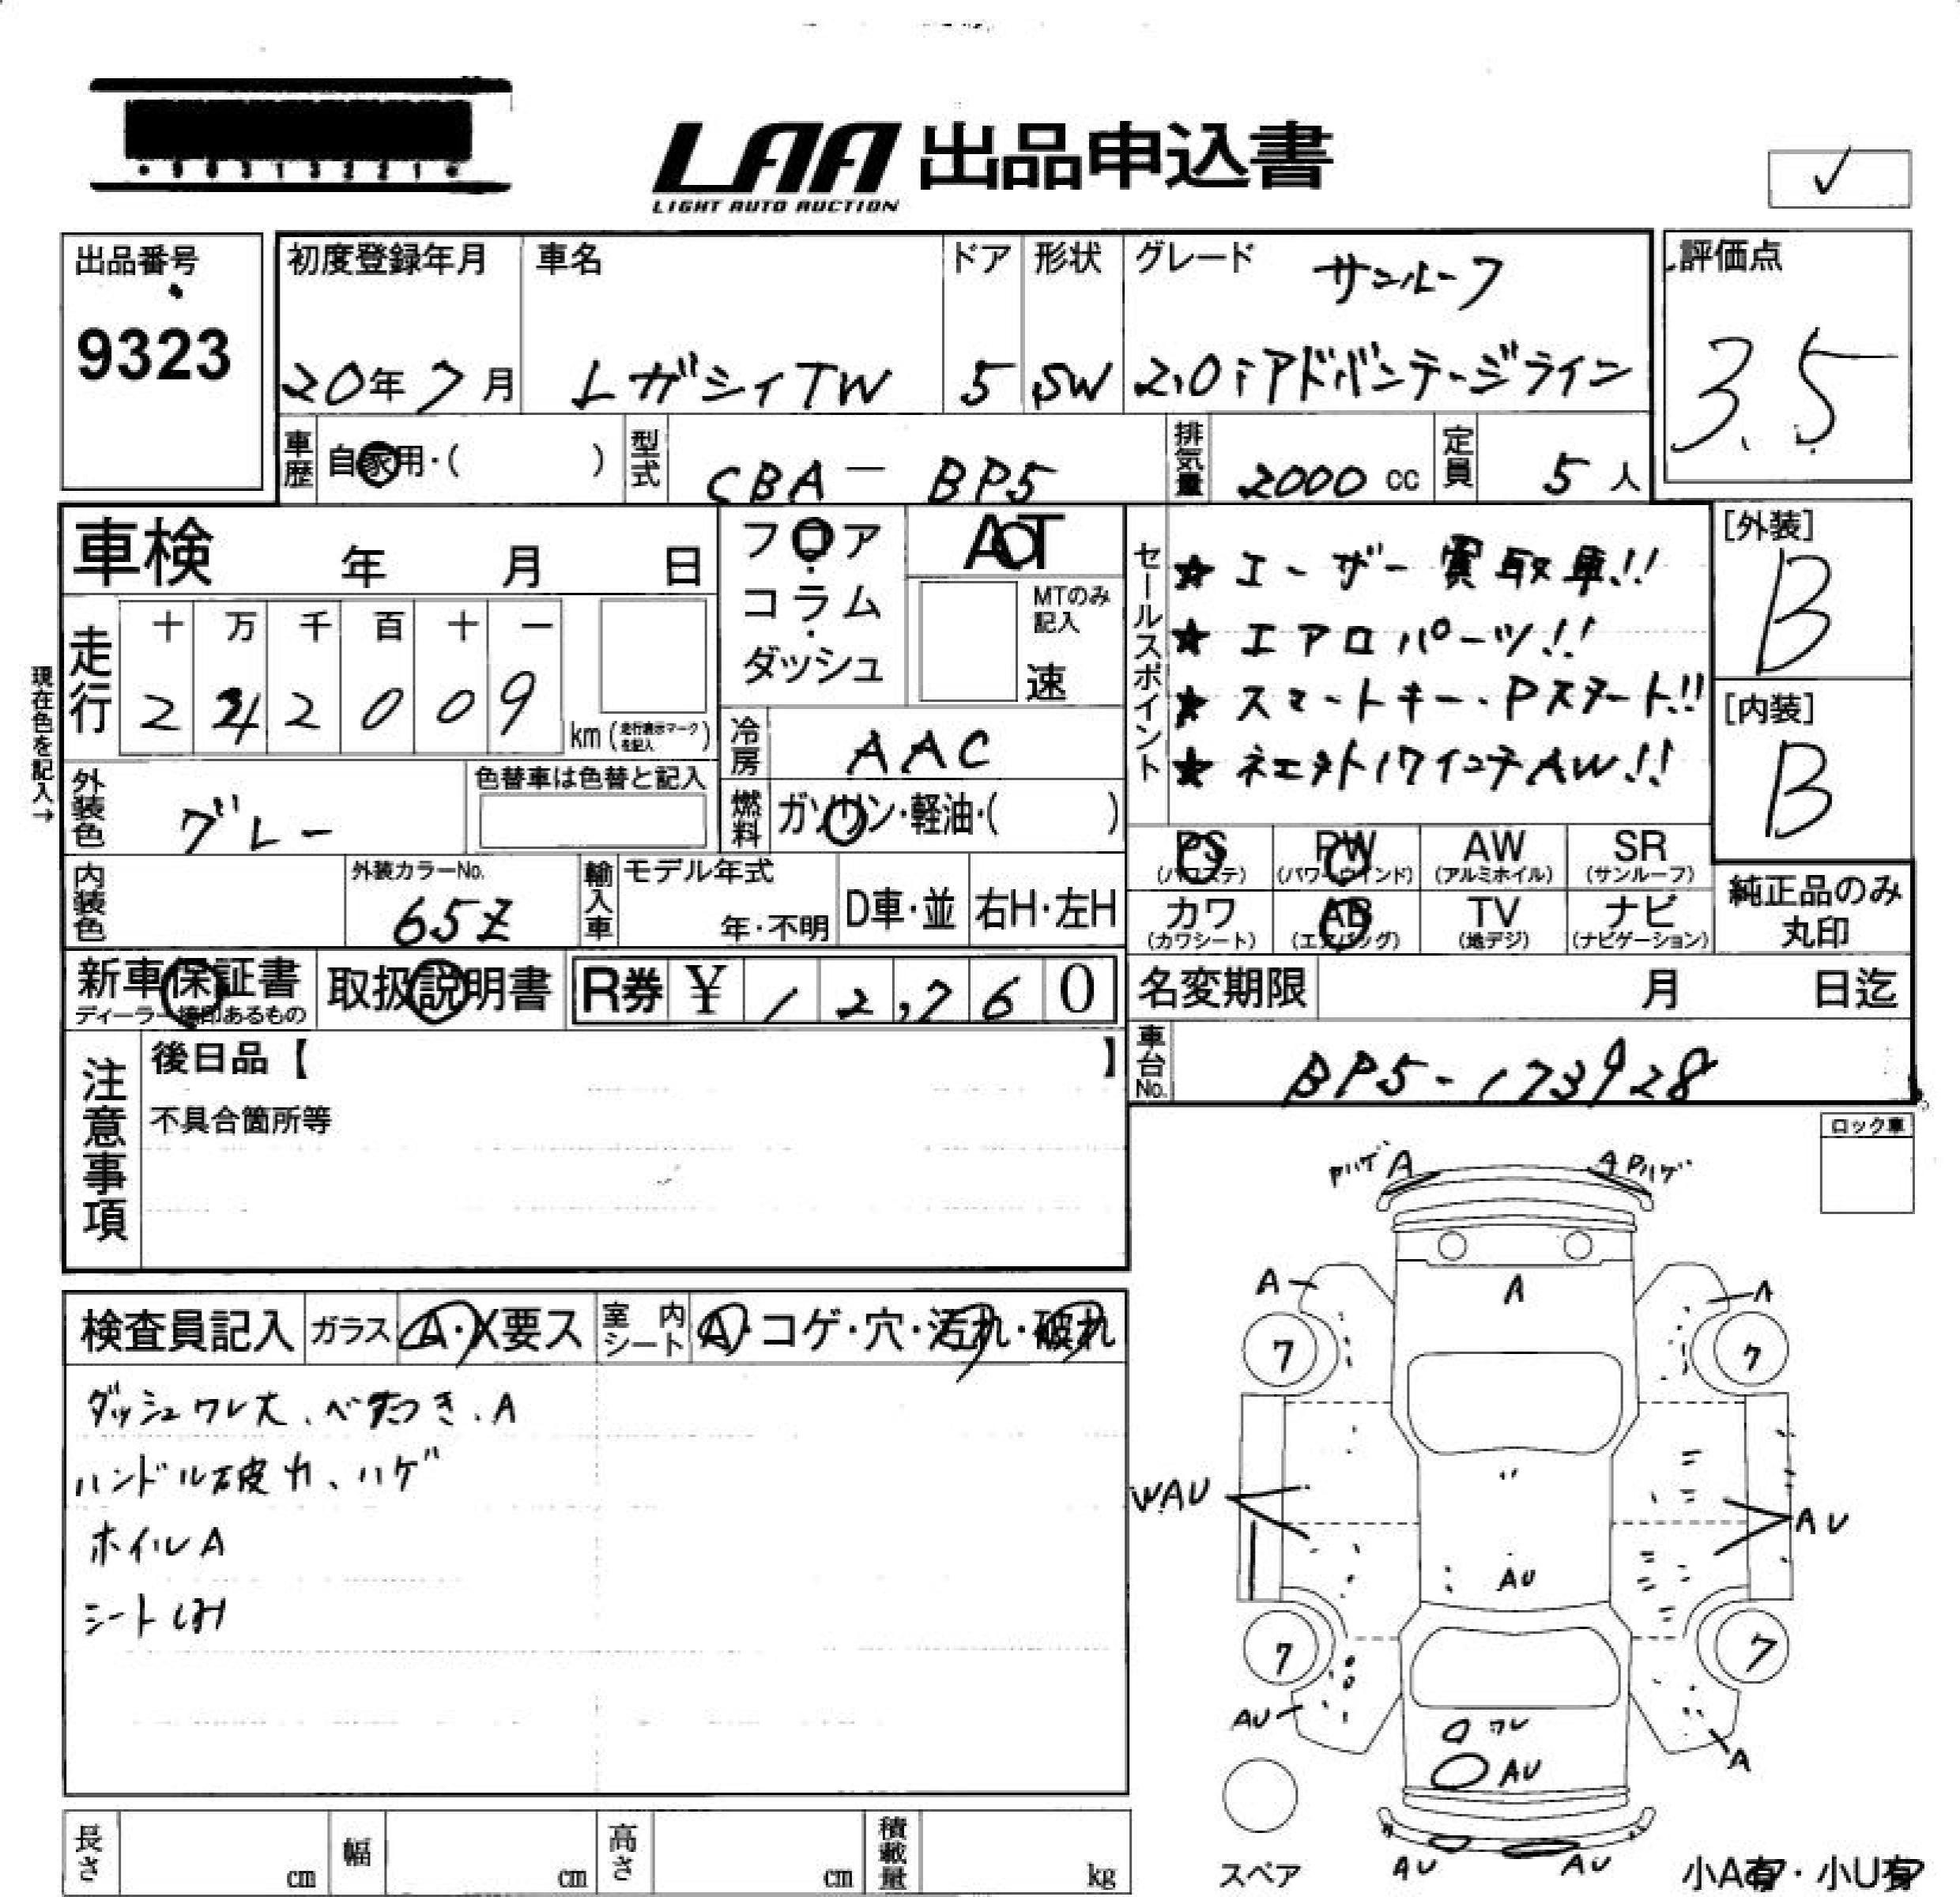 LAA 出品申込書
LIGHT AUTO AUCTION
✓
出品番号
9323
初度登録年月
20年7月
車名
レガシィTW
ドア
5
形状
SW
グレード
サンルーフ
2.0iアドバンテージライン
評価点
3.5
車歴
自家用・( )
型式
CBA-BP5
排気量
2000 cc
定員
5人
車検 年 月 日
フロア
コラム
ダッシュ
AT
MTのみ記入
速
セールスポイント
★ユーザー買取車!!
★エアロパーツ!!
★スマートキー・Pスタート!!
AW!!
[外装]
B
[内装]
B
現在色を記入→
走行
十 万 千 百 十 一
2 2 0 0 9
km (走行表示マークを記入)
冷房
AAC
外装色
グレー
色替車は色替と記入
燃料
ガソリン・軽油・( )
PS (パワステ)
PW (パワーウインド)
AW (アルミホイル)
SR (サンルーフ)
カワ (カワシート)
AB (エアバッグ)
TV (地デジ)
ナビ (ナビゲーション)
純正品のみ丸印
内装色
外装カラーNo.
65Z
輸入車
モデル年式
年・不明
D車・並
右H・左H
新車保証書
ディーラー捺印あるもの
取扱説明書
R券 ¥ 12,760
名変期限 月 日迄
車台No.
BP5-173928
注意事項
後日品【 】
不具合箇所等
ロック車
検査員記入
ガラス A・X要ス
室内シート A・コゲ・穴・汚れ・破れ
ダッシュワレ大、ベタつき、A
ハンドル破れ、ハゲ
ホイルA
シートしみ
Pハゲ A
A Pハゲ
A A A
7 7
WAU
AU
AU
7 7
AU
ワレ
AU
A
スペア
AU AU
小A有・小U有
長さ cm
幅 cm
高さ cm
積載量 kg